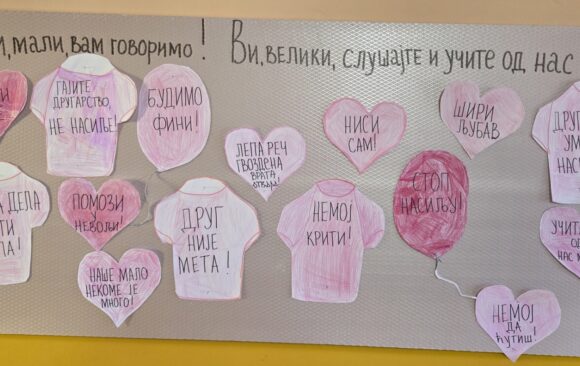 И, МАЛИ, ВАМ ГОВОРИМО! ВИ, ВЕЛИКИ, СЛУШАЈТЕ И УЧИТЕ ОД НАС
ГАЈИТЕ
ДРУГАРСТВО,
НЕ НАСИЉЕ!
БУДИМО
ФИНИ!
ЛЕПА РЕЧ
ГВОЗДЕНА
ВРАТА
НИСИ
САМ!
ШИРИ
ЉУБАВ
ПОМОЗИ
У
НЕВОЉИ!
ДРУГ
НИЈЕ
МЕТА!
НЕМОЈ
КРИТИ!
СТОП
НАСИЉУ!
НАШЕ МАЛО
НЕКОМЕ ЈЕ
МНОГО!
НЕМОЈ
ДА
ЋУТИШ!
ДЕЛА